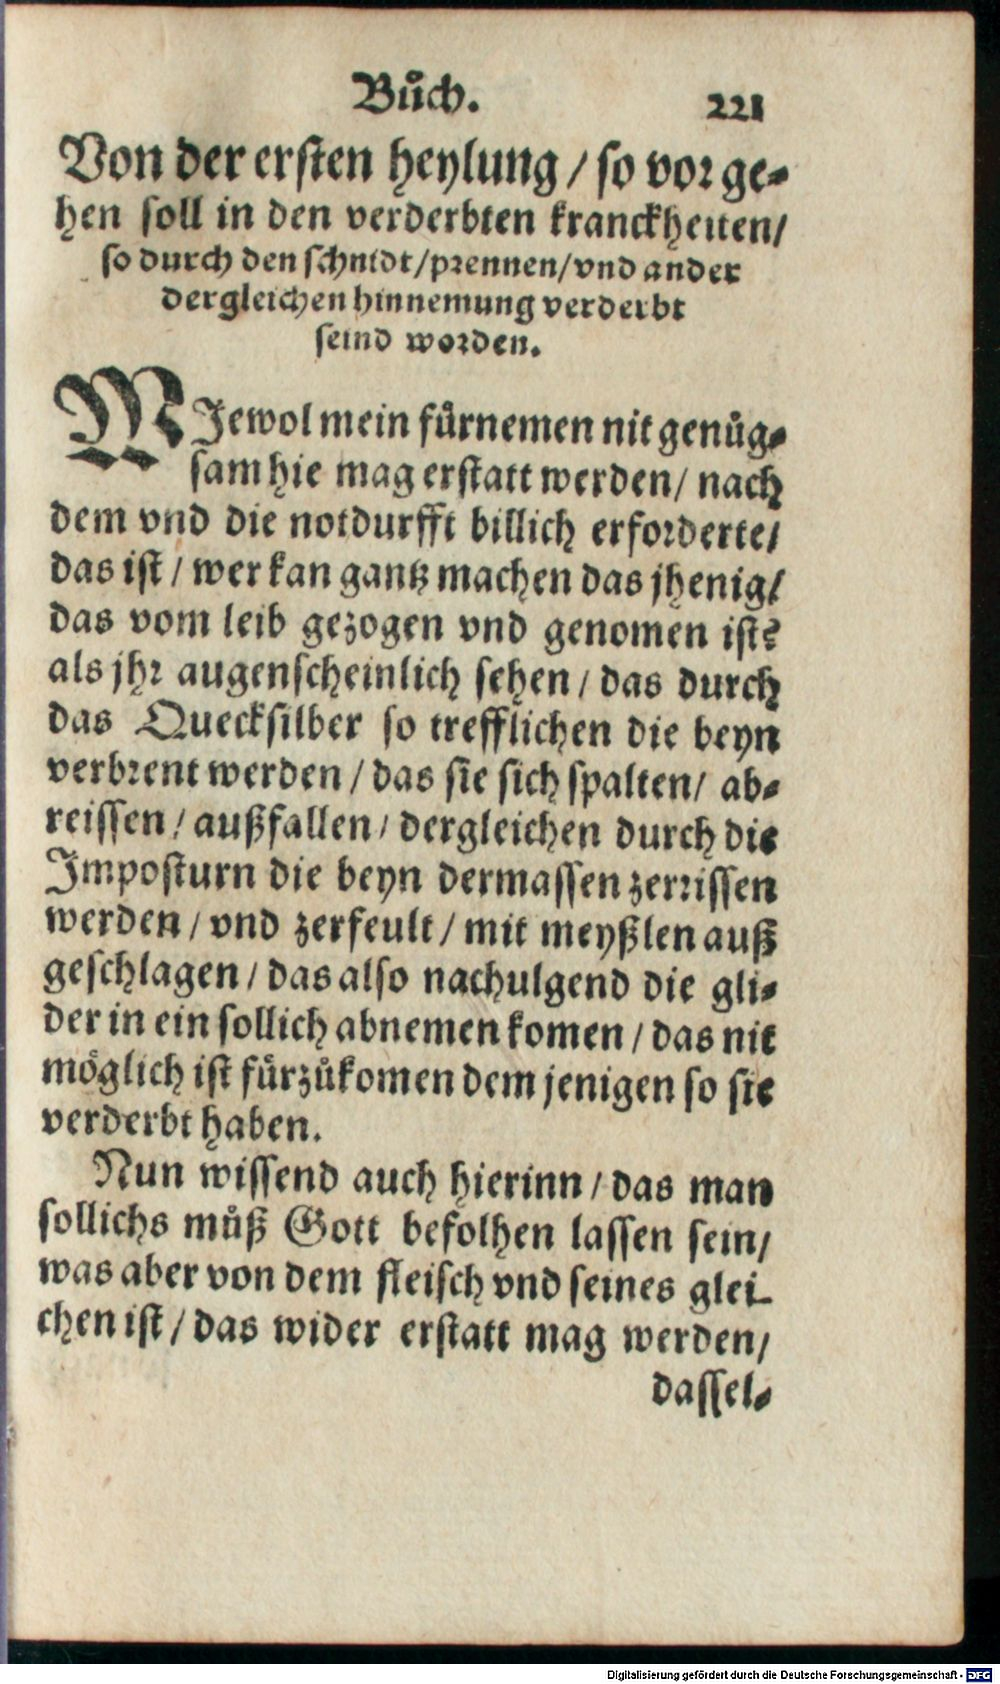 Bůch. 221
Von der ersten heylung / so vor ge-
hen soll in den verderbten kranckheiten/
so durch den schnidt/prennen/vnd ander
dergleichen hinnemung verderbt
seind worden.
WJewol mein fürnemen nit genůg-
sam hie mag erstatt werden/ nach
dem vnd die notdurfft billich erforderte/
das ist / wer kan gantz machen das jhenig/
das vom leib gezogen vnd genomen ist?
als jhr augenscheinlich sehen / das durch
das Quecksilber so trefflichen die beyn
verbrent werden / das sie sich spalten/ ab-
reissen / außfallen / dergleichen durch die
Imposturn die beyn dermassen zerrissen
werden / vnd zerfeult / mit meyßlen auß
geschlagen / das also nachulgend die gli-
der in ein sollich abnemen komen / das nit
möglich ist fürzůkomen dem jenigen so sie
verderbt haben.
Nun wissend auch hierinn / das man
sollichs můß Gott befolhen lassen sein/
was aber von dem fleisch vnd seines glei-
chen ist / das wider erstatt mag werden/
dassel-
Digitalisierung gefördert durch die Deutsche Forschungsgemeinschaft - DFG